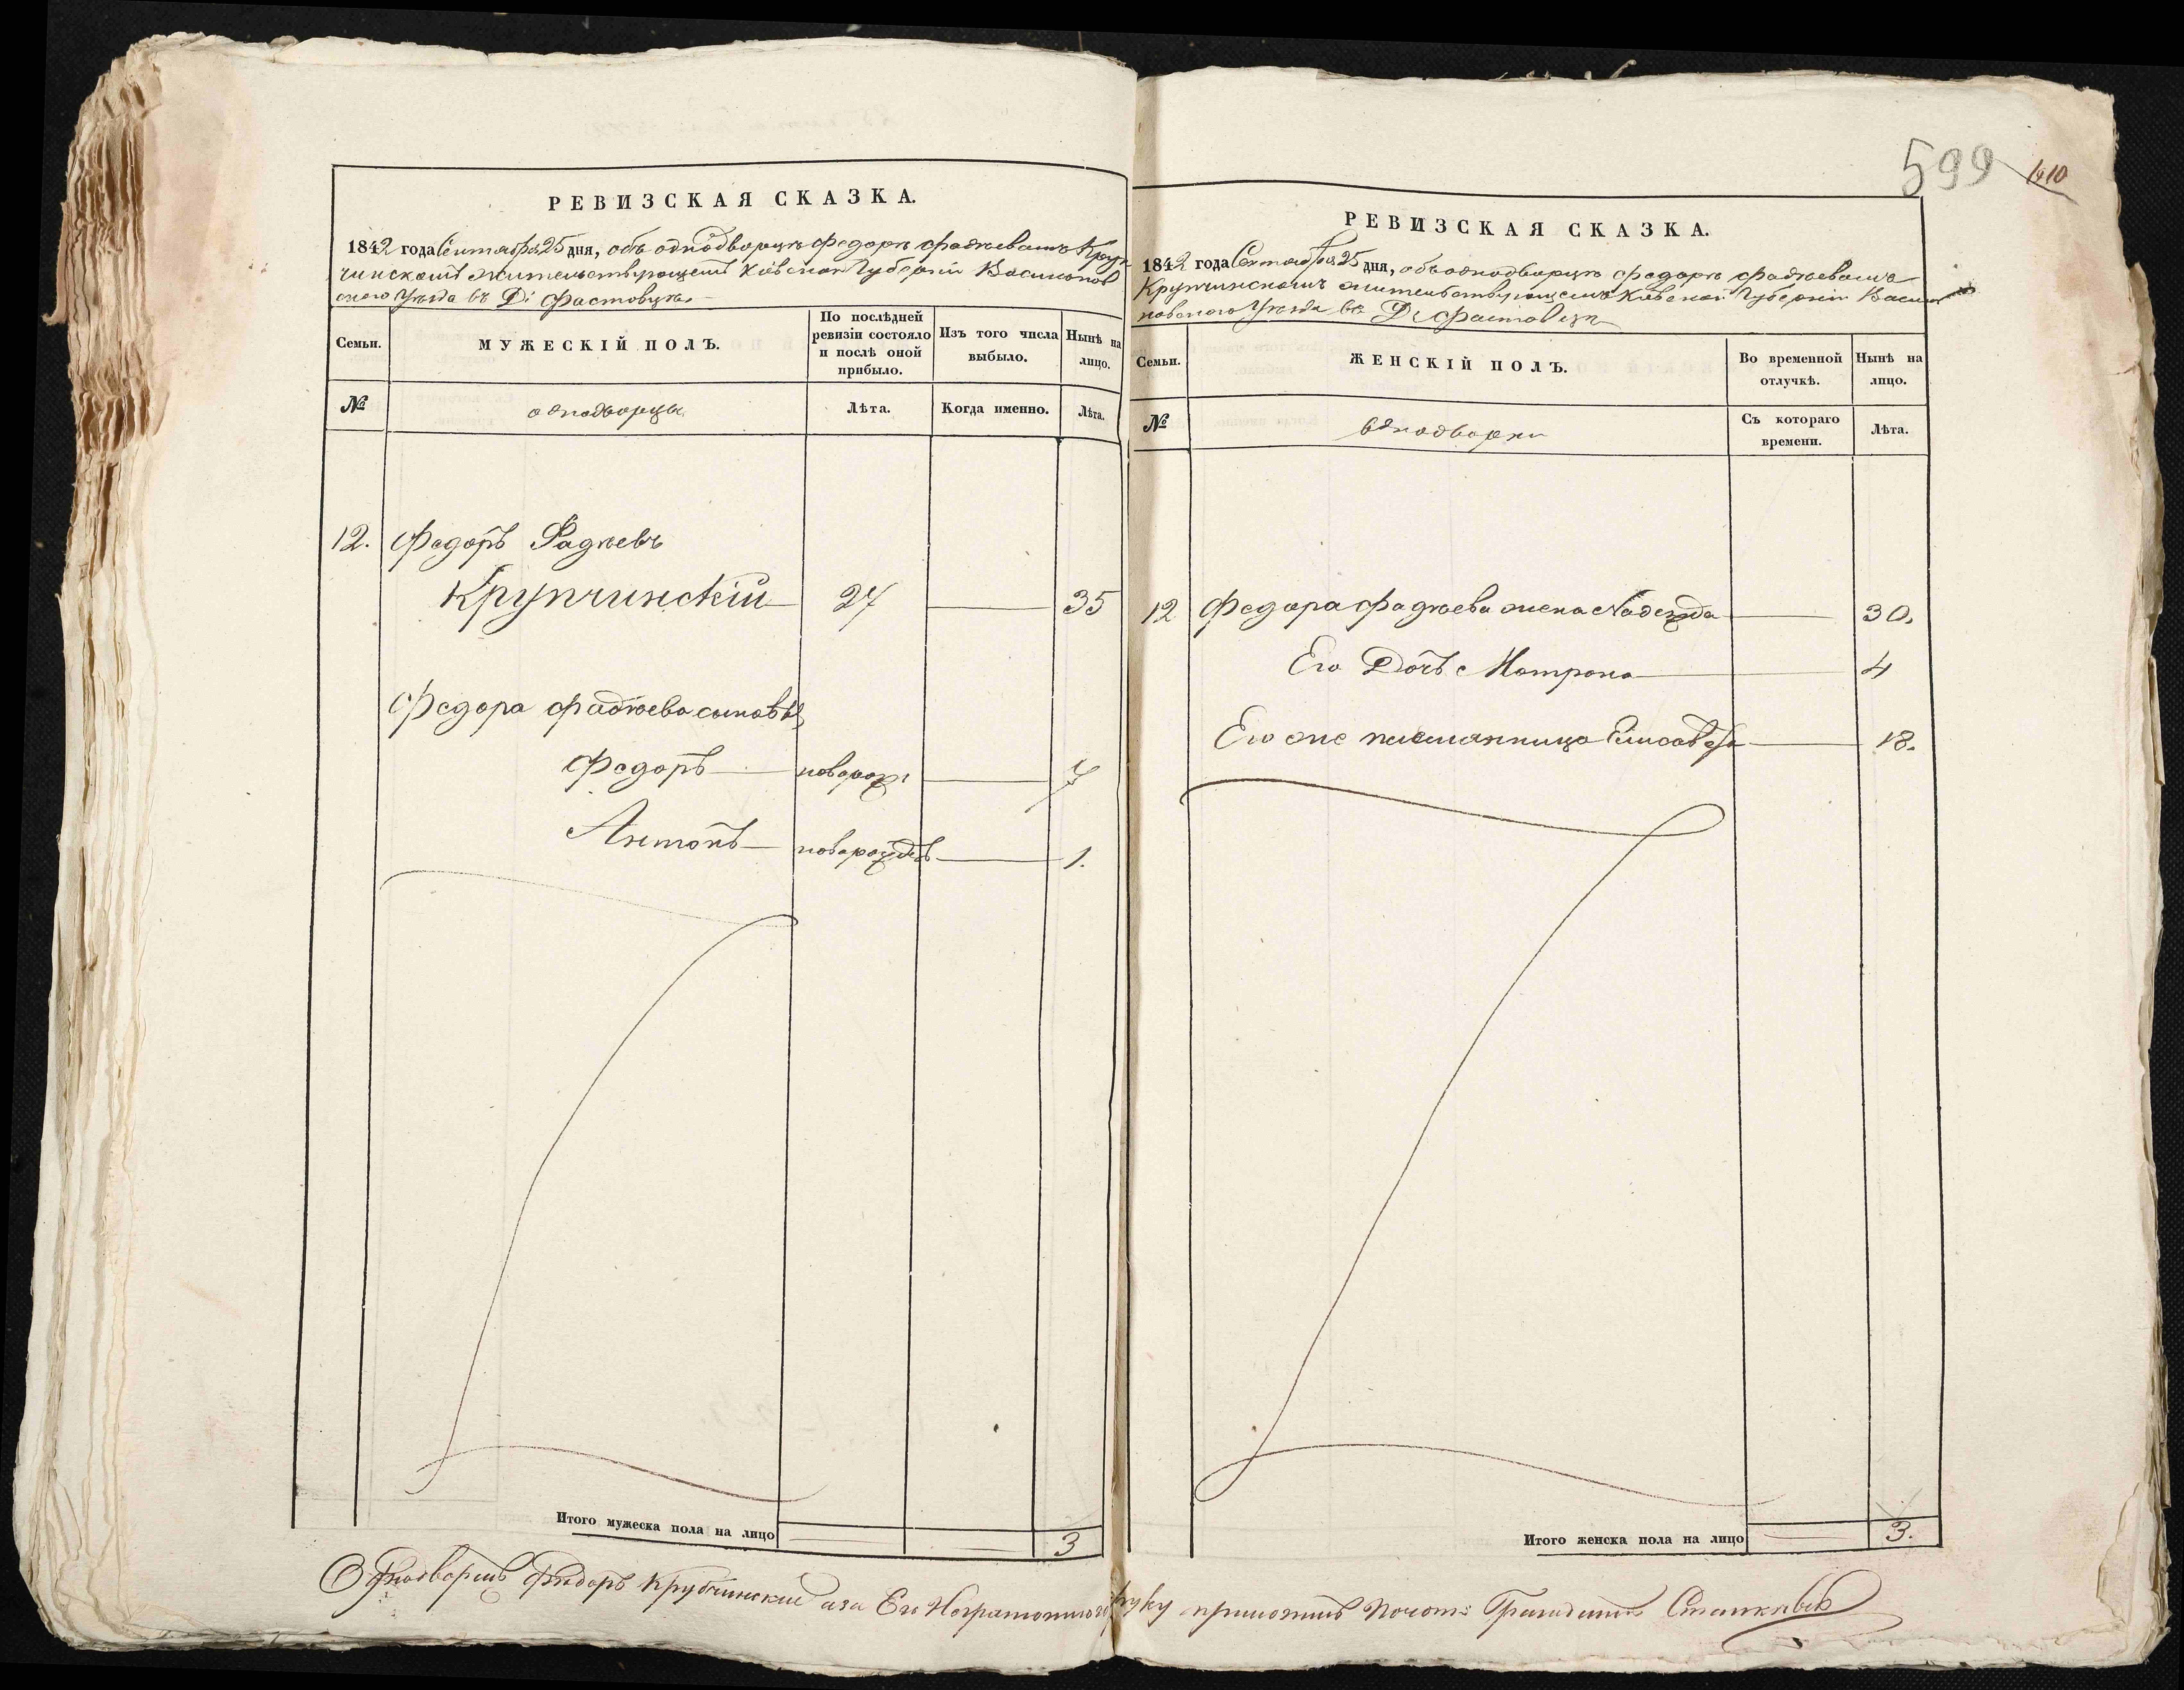 РЕВИЗСКАЯ СКАЗКА.
1842 года Сентября 25 дня, объ однодворцѣ Федорѣ Фадѣевомъ Круп
чинскомъ жительствующемъ Кіевской Губерніи Васильков
скаго Уѣзда въ Д: Фастовцѣ
Семьи.
МУЖЕСКІЙ ПОЛЪ.
По послѣдней
ревизіи состояло
и послѣ оной
прибыло.
Изъ того числа
выбыло.
Нынѣ на
лицо.
№
однодворцы
Лѣта.
Когда именно.
Лѣта.
12. Федоръ Фадѣевъ
Крупчинскій 27 35
Федора Фадѣева сыновья
Федоръ новорож: 7
Антонъ новорожд 1.
Итого мужеска пола на лицо 3
599 1210
РЕВИЗСКАЯ СКАЗКА.
1842 года Сентября 25 дня, объ однодворцѣ Федорѣ Фадѣевомъ
Крупчинскомъ жительствующемъ Кіевской Губерніи Василь
ковскаго Уѣзда въ Д: Фастовцѣ
Семьи.
ЖЕНСКІЙ ПОЛЪ.
Во временной
отлучкѣ.
Нынѣ на
лицо.
№
Однодворки
Съ котораго
времени.
Лѣта.
12 Федора Фадѣева жена Надежда 30.
Его Дочь Матрона 4
Его же племянница Елисавета 18.
Итого женска пола на лицо 3.
Однодворецъ Федоръ Крупчинский а за Его Неграмотного руку приложилъ Станкевъ